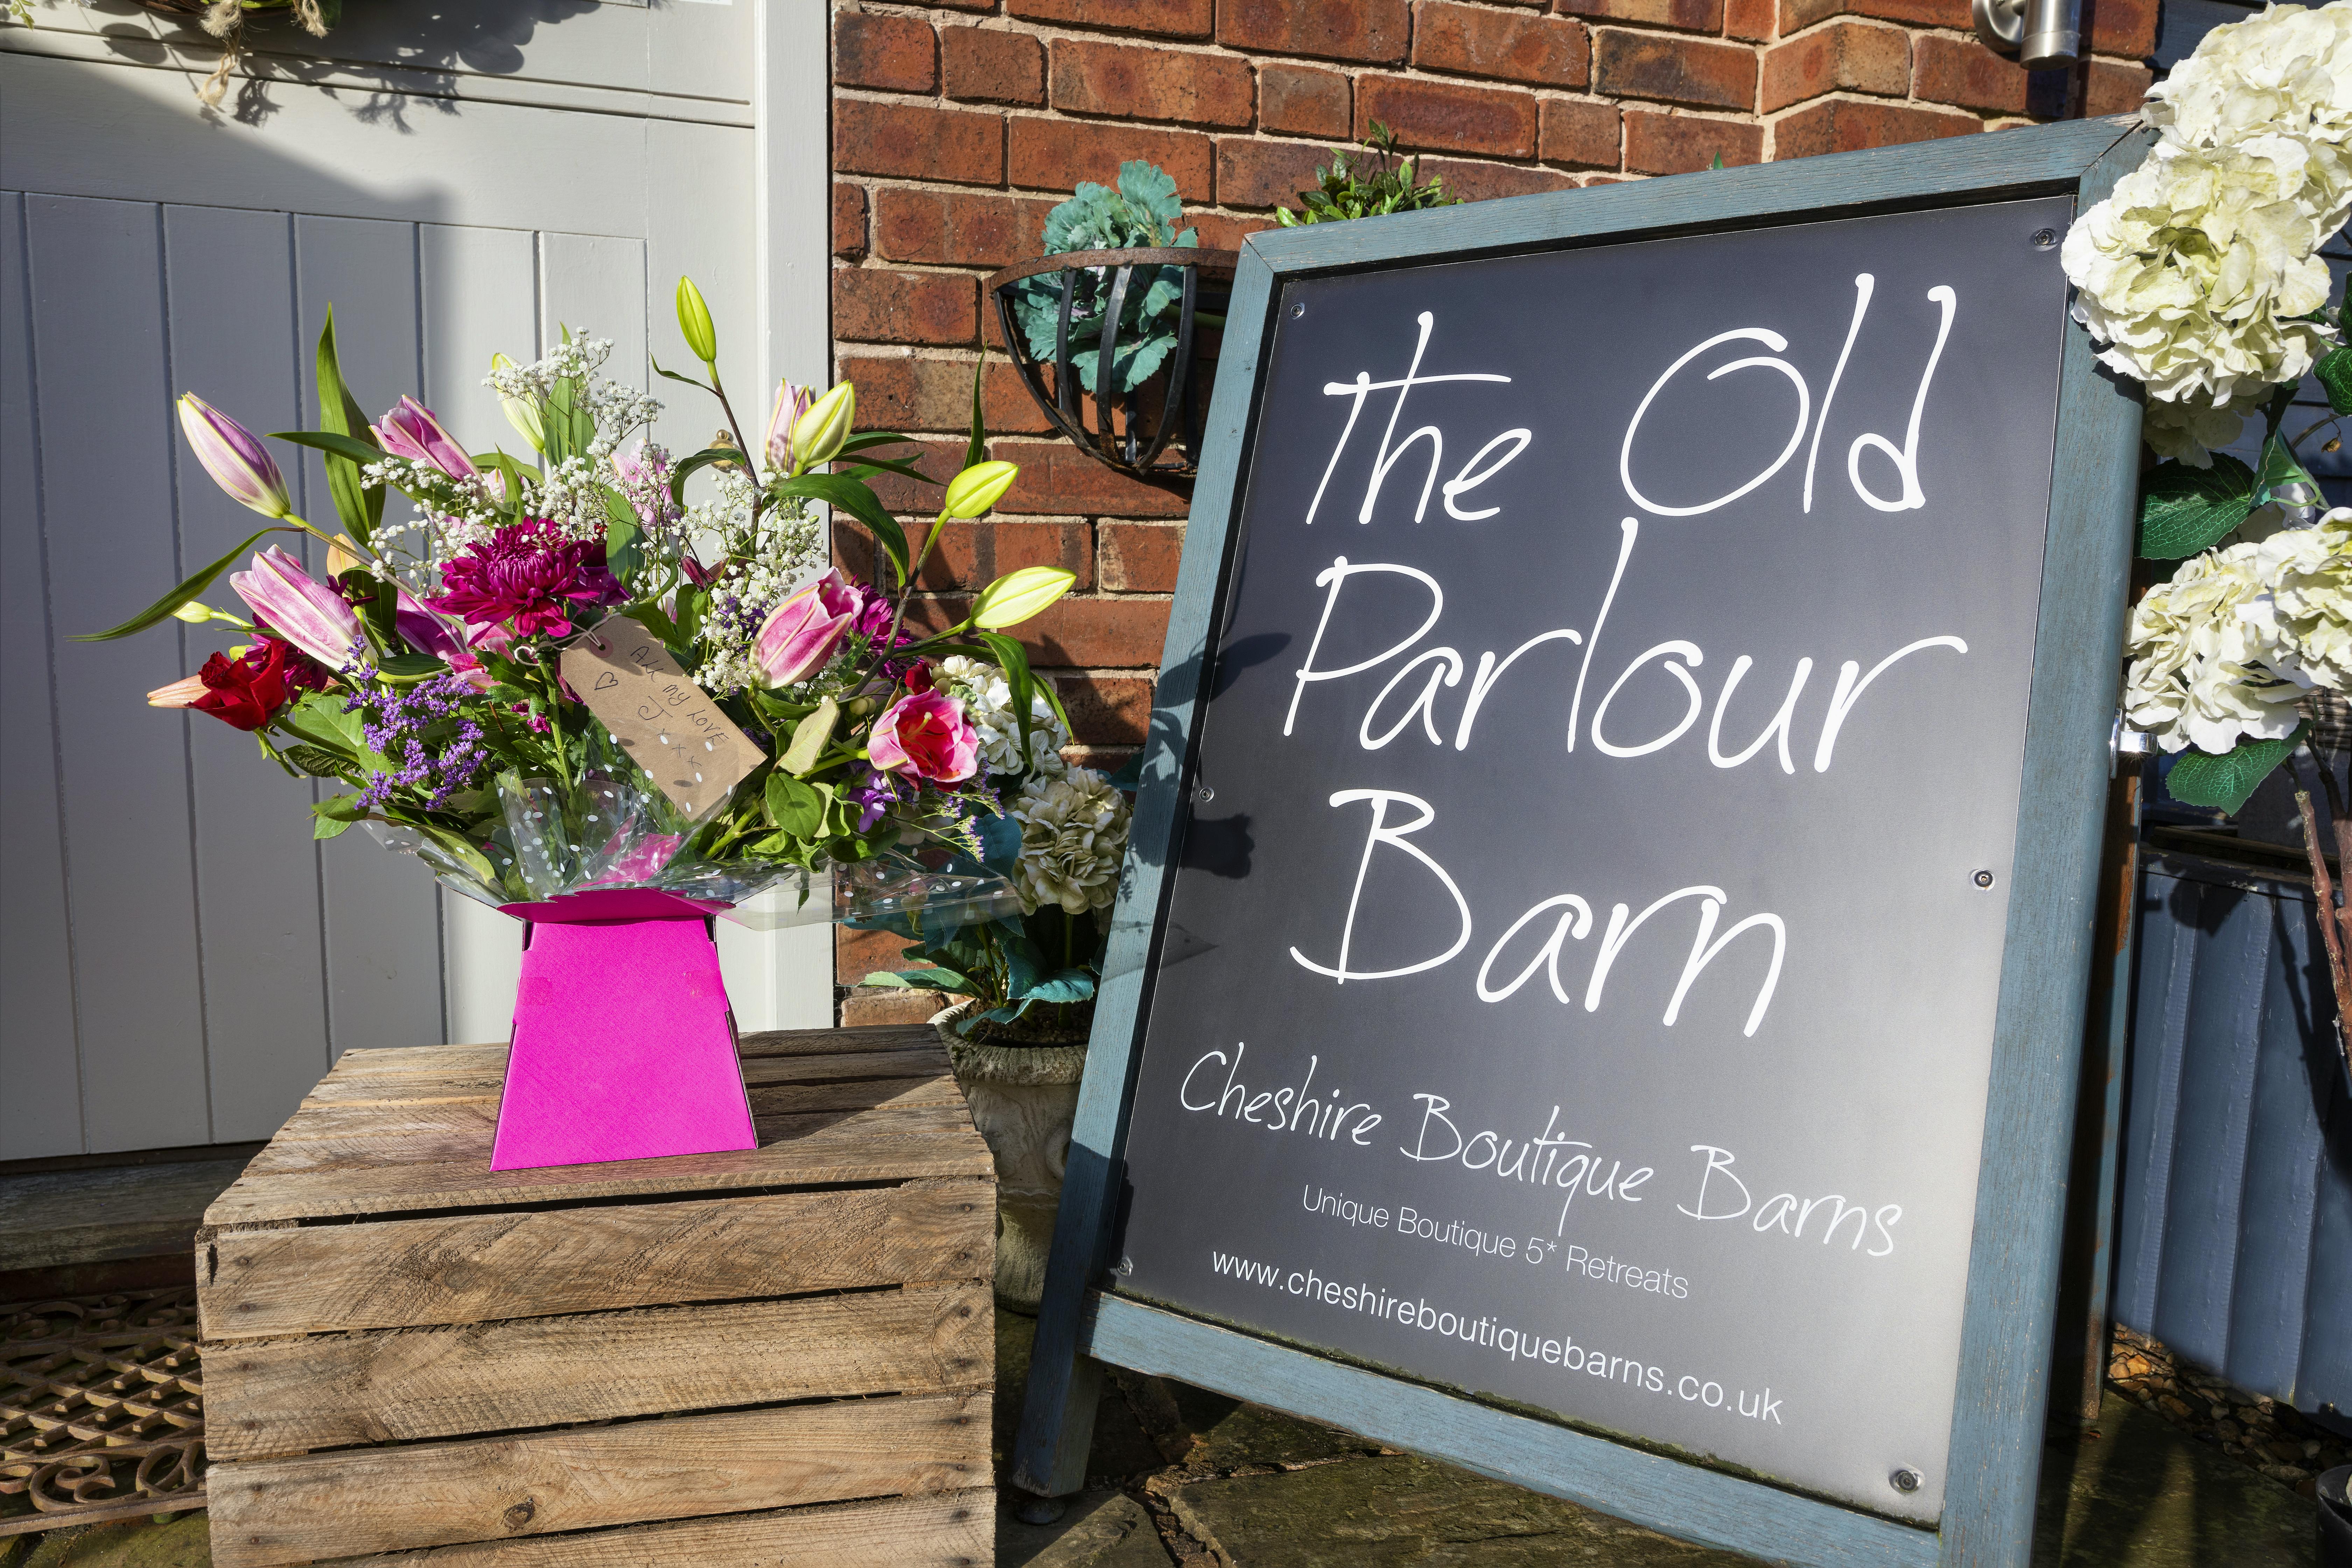 All my love
J
x x x
The Old
Parlour
Barn
Cheshire Boutique Barns
Unique Boutique 5* Retreats
www.cheshireboutiquebarns.co.uk